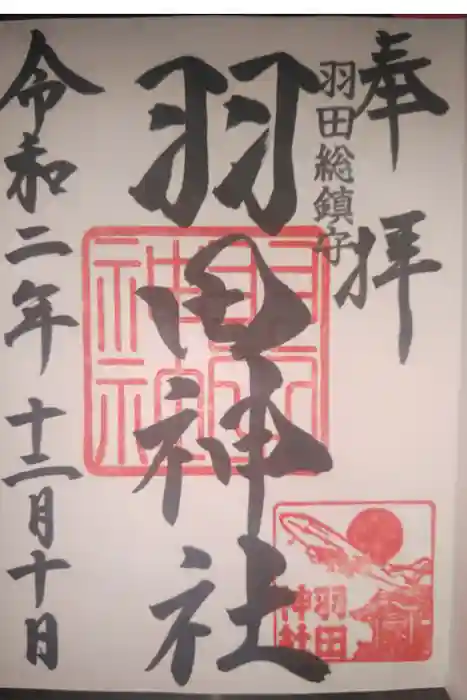 奉拝
羽田総鎮守
羽田神社
令和二年十二月十日
羽田
神社